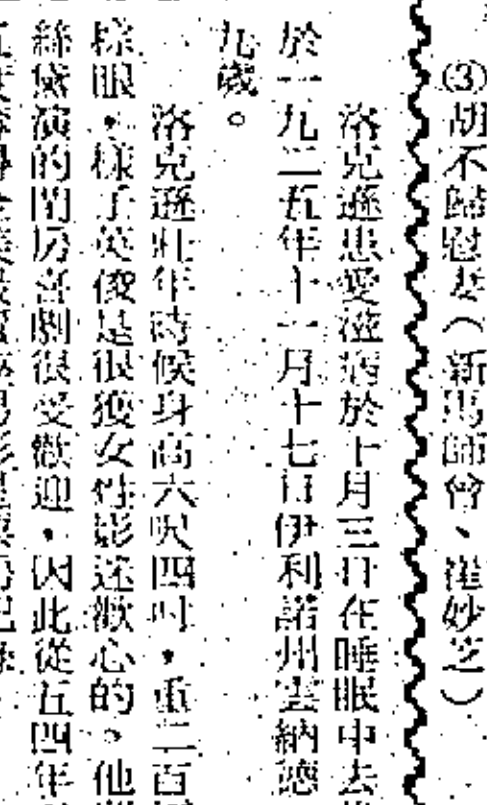 ③胡不歸慰妻（新馬師曾、崔妙芝）
洛克遜患愛滋病於十月三日在睡眠中去
於一九二五年十一月十七日伊利諾州雲納德
九歲。
洛克遜壯年時候身高六呎四吋，重二百
樣眼，樣子英俊是很獲女性影迷歡心的。他
絲黛演的閨房喜劇很受歡迎，因此從五四年